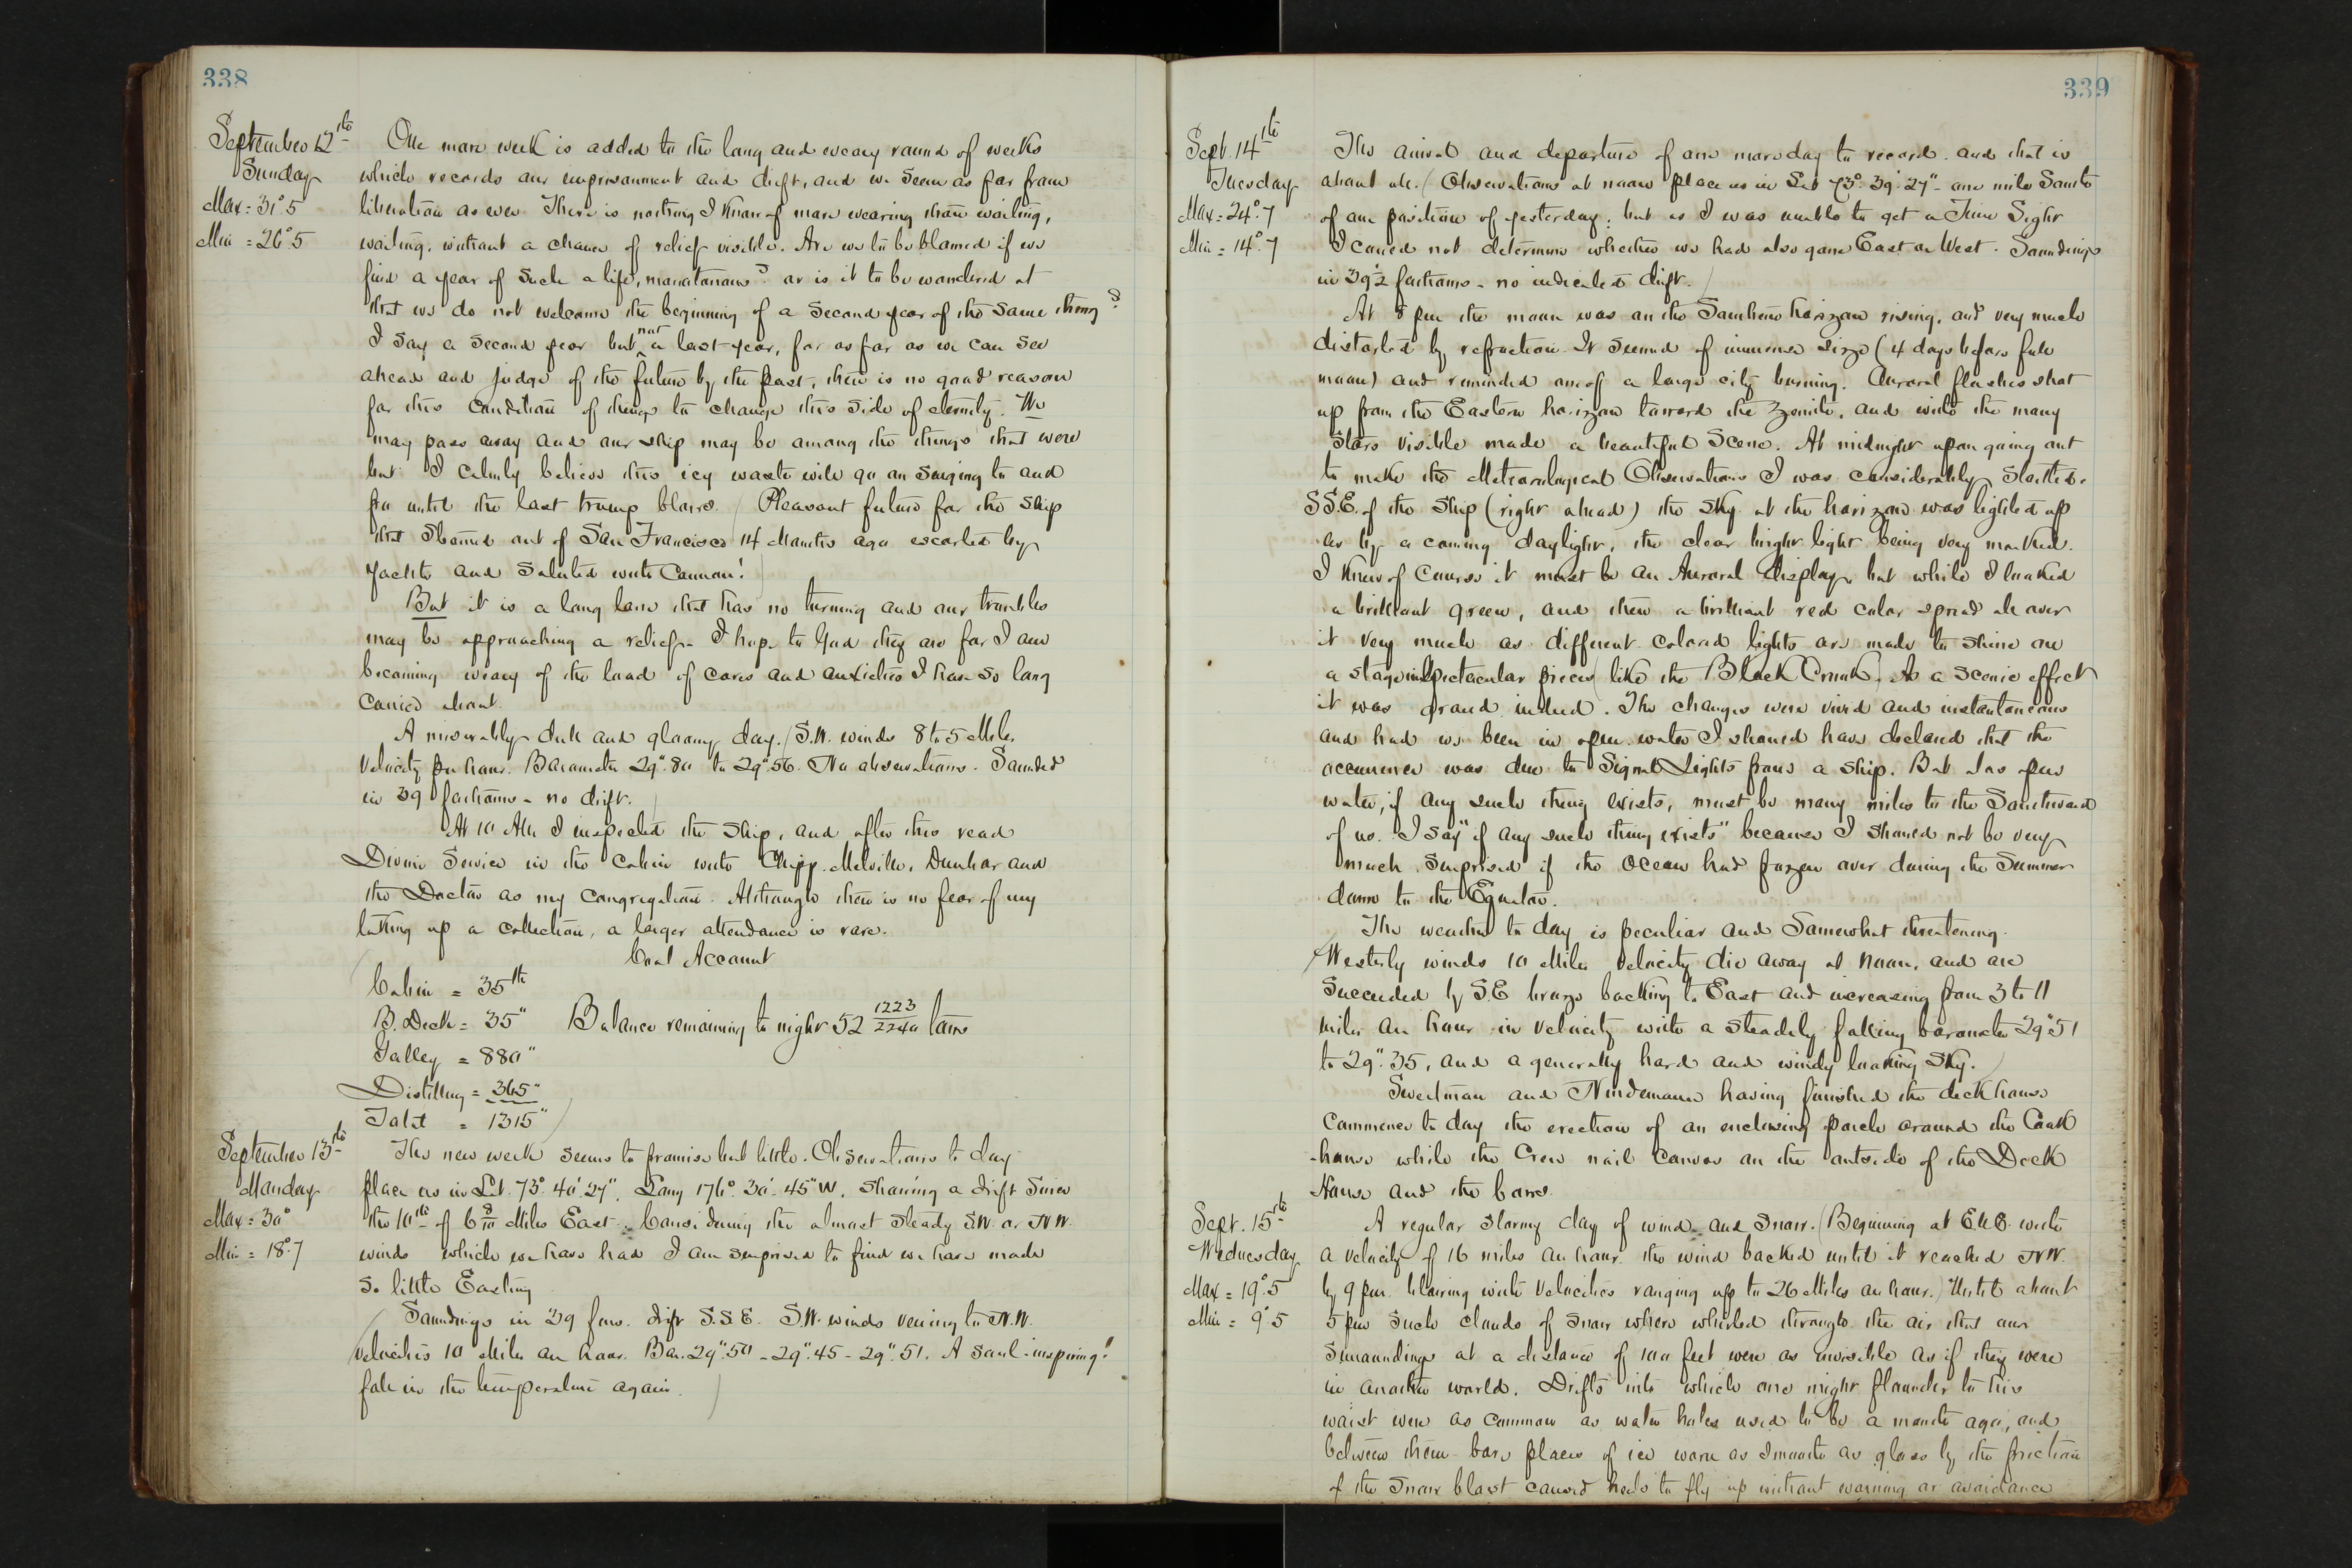 338
September 12th
Sunday
Max = 31°5
Min = 26°5
One more week is added to the long and weary round of weeks
which records our imprisonment and drift, and we seem as far from
liberation as ever. There is nothing I know of more wearing than waiting,
waiting, without a chance of relief visible. Are we to be blamed if we
find a year of such a life, monotonous? or is it to be wondered at
that we do not welcome the beginning of a second year of the same thing?
I say a second year but not a last year, for as far as we can see
ahead and judge of the future by the past, there is no good reason
for this condition of things to change this side of eternity. We
may pass away and our ship may be among the things that were
but I calmly believe this icy waste will go on surging to and
fro until the last trump blows. (Pleasant future for the ship
that steamed out of San Francisco 14 Months ago escorted by
Yachts and saluted with Cannon!
But it is a long lane that has no turning and our troubles
may be approaching a relief. I hope to God they are for I am
becoming weary of the load of cares and anxieties I have so long
carried about.
A miserably dull and gloomy day. (S.W. winds 8 to 5 Miles
velocity per hour. Barometer 29".80 to 29".56. No observations. Sounded
in 39 fathoms - no drift.
At 10 AM I inspected the ship, and after this read
Divine Service in the Cabin with Chipp. Melville, Dunbar and
the Doctor as my congregation. Although there is no fear of my
taking up a collection, a larger attendance is rare.
Coal Account
Cabin = 35 lb
B. Deck = 35 " Balance remaining to night 52 1223/2240 tons
Galley = 880 "
Distilling = 365 "
Total = 1315 "
September 13th
Monday
Max = 30°
Min = 18°.7
The new week seems to promise but little. Observations to day
place us in Lat. 73° 40' 27". Long 176° 30' 45" W. showing a drift since
the 10th of 6 8/10 Miles East. Considering the almost steady S.W. or N.W.
winds which we have had I am surprised to find we have made
so little Easting
Soundings in 39 fms. drift S.S.E. S.W. winds veering to N.W.
Velocities 10 Miles an hour. Bar. 29".50 - 29".45 - 29".51. A soul-inspiring!
fall in the temperature again.
339
Sept. 14th
Tuesday
Max = 24°.7
Min = 14°.7
The arrival and departure of one more day to record. and that is
about all. (Observations at noon place us in Lat 73°. 39' 27" - one mile South
of our position of yesterday; but as I was unable to get a Time Sight
I could not determine whether we had also gone East or West. Soundings
in 39½ fathoms - no indicated drift.)
At 8 pm the moon was on the Southern horizon rising, and very much
distorted by refraction. It seemed of immense size (4 days before full
moon) and reminded one of a large city burning. Auroral flashes shot
up from the Eastern horizon toward the zenith, and with the many
stars visible made a beautiful scene. At midnight upon going out
to make the Meteorological Observations I was considerably startled.
SSE. of the ship (right ahead) the sky at the horizon was lighted up
as by a coming daylight, the clear bright light being very marked.
I knew of course it must be an Auroral display, but while I looked
a brilliant green, and then a brilliant red color spread all over
it very much as different colored lights are made to shine on
a stage in spectacular pieces (like the Black Crook). As a scenic effect
it was grand indeed. The changes were vivid and instantaneous
and had we been in open water I should have declared that the
occurrence was due to Signal Lights from a ship. But alas open
water, if any such thing exists, must be many miles to the Southward
of us. I say "if any such thing exists" because I should not be very
much surprised if the ocean had frozen over during the Summer
down to the Equator.
The weather to day is peculiar and somewhat threatening.
(Westerly winds 10 Miles velocity die away at noon, and are
succeeded by S.E breezes backing to East and increasing from 3 to 11
miles an hour in velocity with a steadily falling barometer 29".51
to 29".35, and a generally hard and windy looking sky.)
Sweetman and Nindemann having finished the deck house
commence to day the erection of an enclosing porch around the Cook
-house while the Crew nail canvas on the outside of the Deck
House and the bows.
Sept. 15th
Wednesday
Max = 19°.5
Min = 9°5
A regular stormy day of wind and snow. (Beginning at E.N.E. with
a velocity of 16 miles an hour. the wind backed until it reached NW.
by 9 pm. blowing with velocities ranging up to 26 Miles an hour.) Until about
5 pm such clouds of snow where whirled through the air that our
surroundings at a distance of 100 feet were as invisible as if they were
in another world. Drifts into which one might flounder to his
waist were as common as water holes used to be a month ago, and
between them bare places of ice worn as smooth as glass by the friction
of the snow blast caused heels to fly up without warning or avoidance